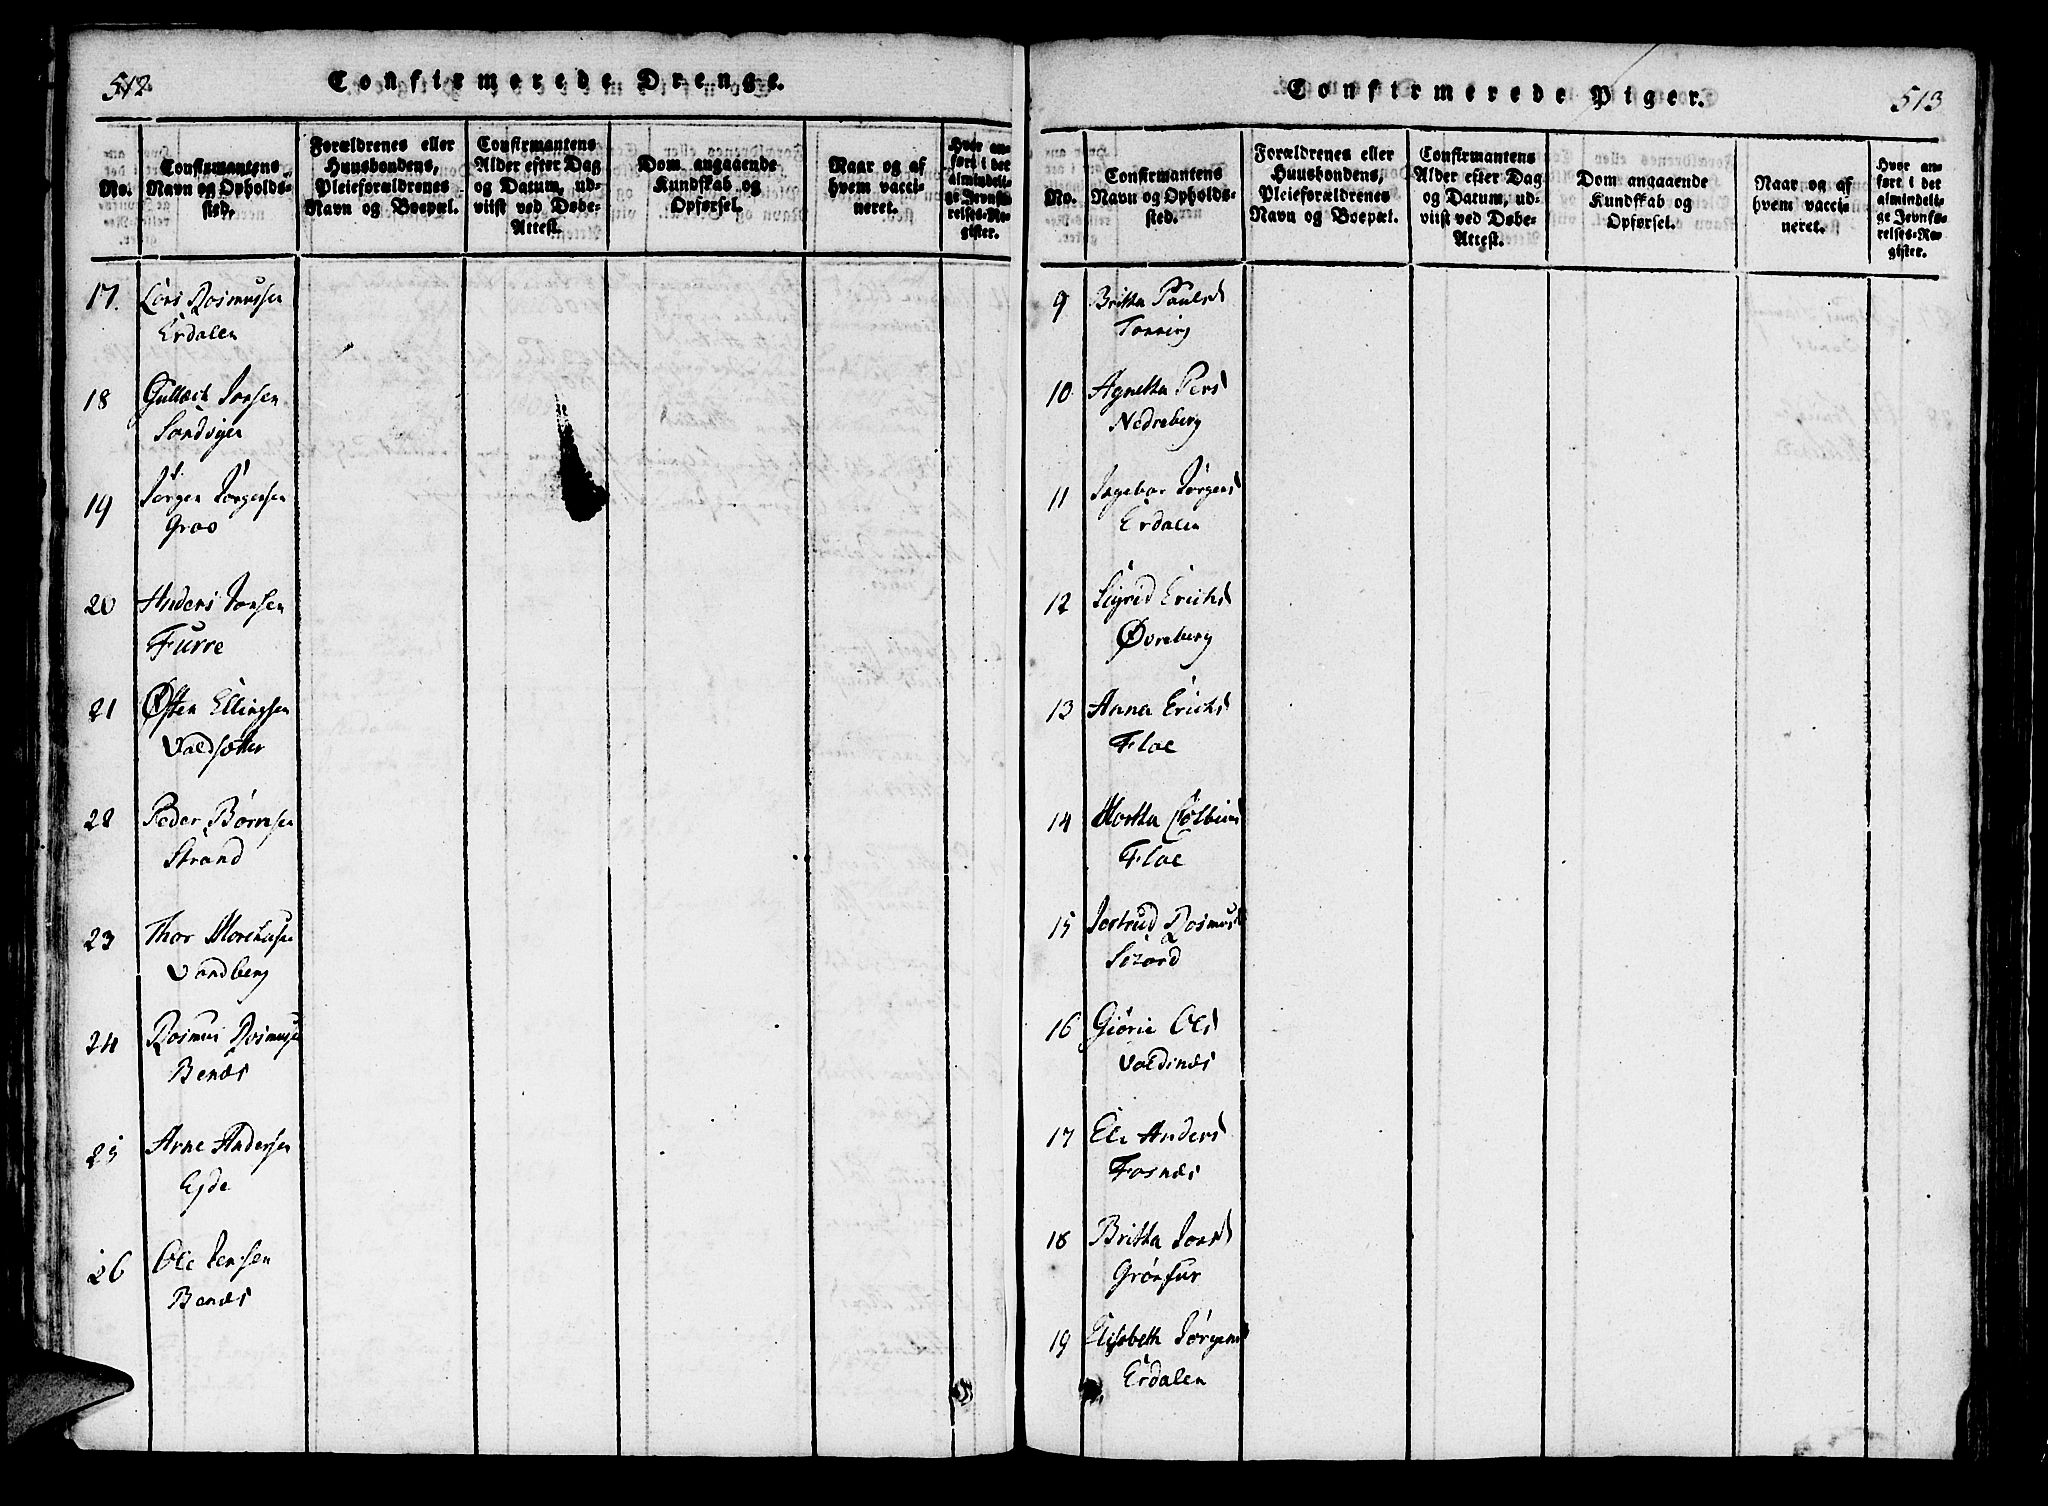 512
Confirmerede Drenge.
No.
Confirmantens
Navn og Opholds-
sted.
Forældrenes eller
Huusbondens,
Pleieforældrenes
Navn og Boepæl.
Confirmantens
Alder efter Dag
og Datum, ud-
viist ved Døbe-
Attest.
Dom angaaende
Kundskab og
Opførsel.
Naar og af
hvem vacci-
neret.
Hvor an-
ført i det
almindeli-
ge Jevnfø-
relses-Re-
gister.
17. Lars Rasmussen
Erdalen
18 Gullack Jonsen
Sandvigen
19 Jörgen Jörgensen
Grao
20 Anders Jonsen
Furre
21 Østen Ellingsen
Valdsætter
22 Peder Börnsen
Strand
23 Thor
Vandberg
24 Rasmus Rasmuss
Benæs
25 Arne Andersen
Egde
26 Ole Jensen
Benæs
Confirmerede Piger.
513
No.
Confirmantens
Navn og Opholds-
sted.
Forældrenes eller
Huusbondens,
Pleieforældrenes
Navn og Boepæl.
Confirmantens
Alder efter Dag
og Datum, ud-
viist ved Døbe-
Attest.
Dom angaaende
Kundskab og
Opførsel.
Naar og af
hvem vacci-
neret.
Hvor an-
ført i det
almindeli-
ge Jevnfø-
relses-Re-
gister.
9 Britha Paulsd
Tonning
10 Agnetha Persd
Nedreberg
11 Ingebor Jörgensd
Erdalen
12 Sigrid Erichsd
Øvreberg
13 Anna Erichsd
Floe
14 Martha
Floe
15 Jertrud Rasmusd
16 Giörie Olsd
Valdinæs
17 Eli Andersd
Fosnæs
18 Britha Jonsd
Grönfur
19 Elisabeth Jörgensd
Erdalen